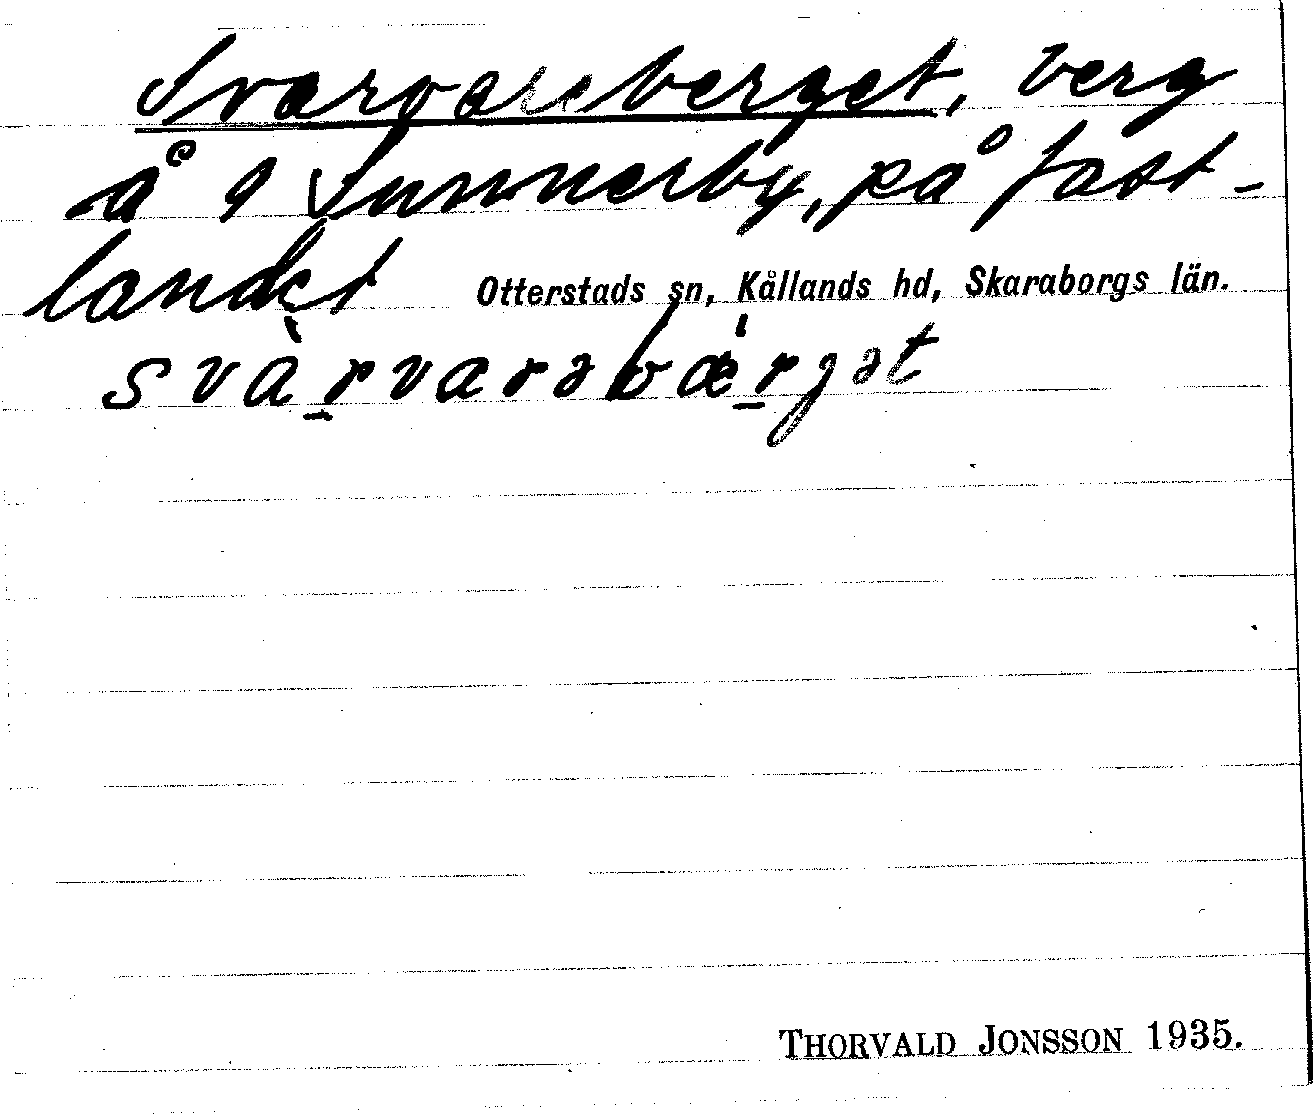 Svarvareberget, berg
å 9 Sunnerby, på fast-
landet Otterstads sn, Kållands hd, Skaraborgs län.
svàrvarəbæ̀rgət
THORVALD JONSSON 1935.